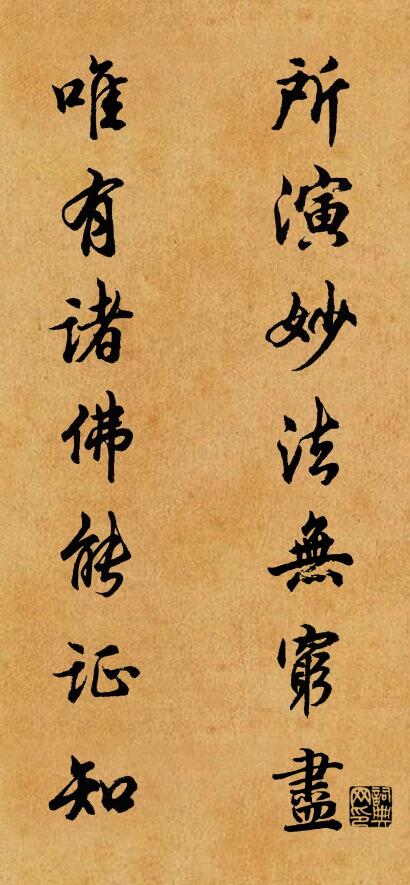 所演妙法無窮盡
唯有諸佛能证知
詞典网印